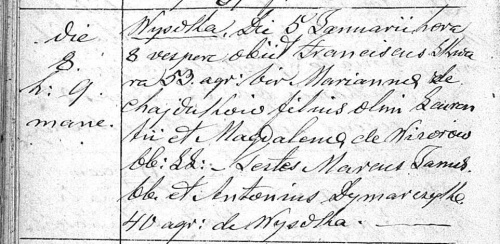 die
8.
h: 9.
mane.
Wysoka. Die 5 Januarii hora
8 vespere obiit Franciscus Skwa
ra 53. agr: vir Mariannæ de
filius olim Lauren
tii et Magdalena de
ob: LL: Testes Marcus Janus
et Antonius Dymarczyk
40 agr: de Wysoka.